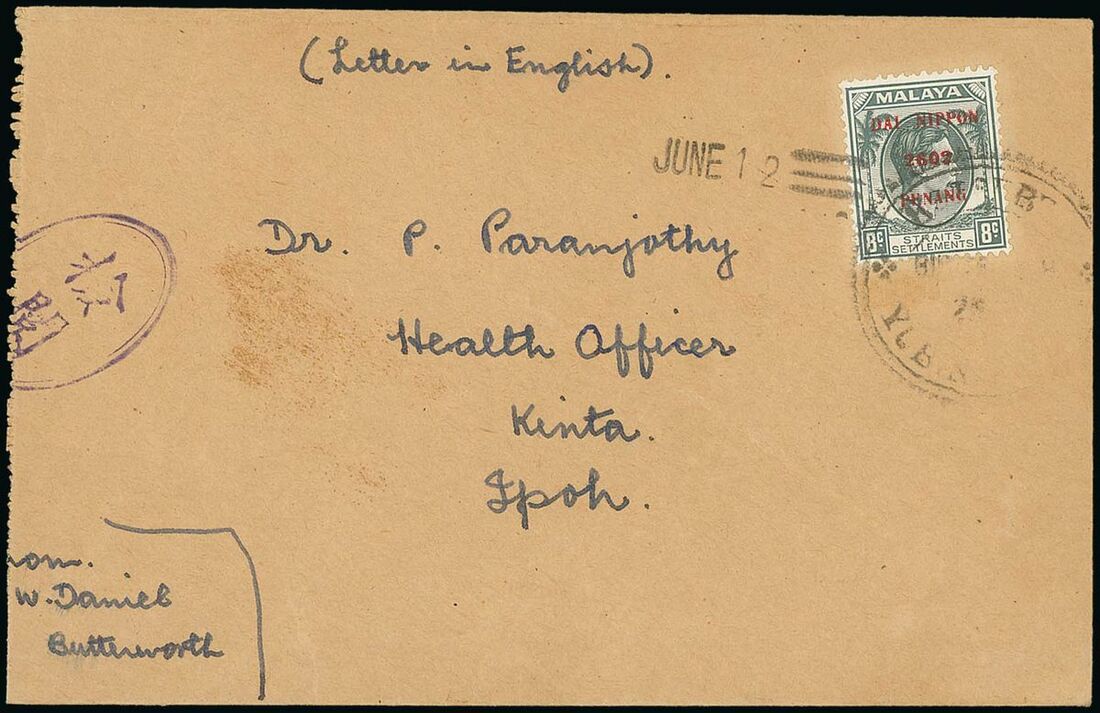 (Letter in English).
MALAYA
DAI NIPPON
2602
PENANG
8c STRAITS SETTLEMENTS 8c
JUNE 12
Dr. P. Paranjothy
Health Officer
Kinta.
Ipoh.
W. Daniel
Butterworth